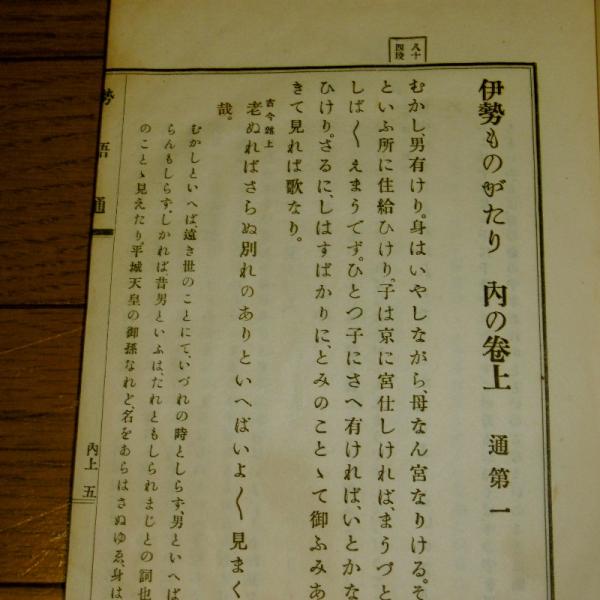 八十四段
伊勢ものがたり 內の卷上 通第一
むかし、男有けり。身はいやしながら、母なん宮なりける。そ
といふ所に住給ひけり。子は京に宮仕しければ、まうづと
しば〱えまうでず。ひとつ子にさへ有ければ、いとかな
ひけり。さるに、しはすばかりに、とみのことゝて御ふみあ
きて見れば歌なり。
古今雜上
老ぬればさらぬ別れのありといへばいよ〱見まく
哉。
むかしといへば、遠き世のことにて、いづれの時としらず、男といへば
らんもしらず。しかれば昔男といふは、たれともしられまじとの詞也
のことゝ見えたり。平城天皇の御孫なれど、名をあらはさぬゆゑ、身は
勢語通
內上 五